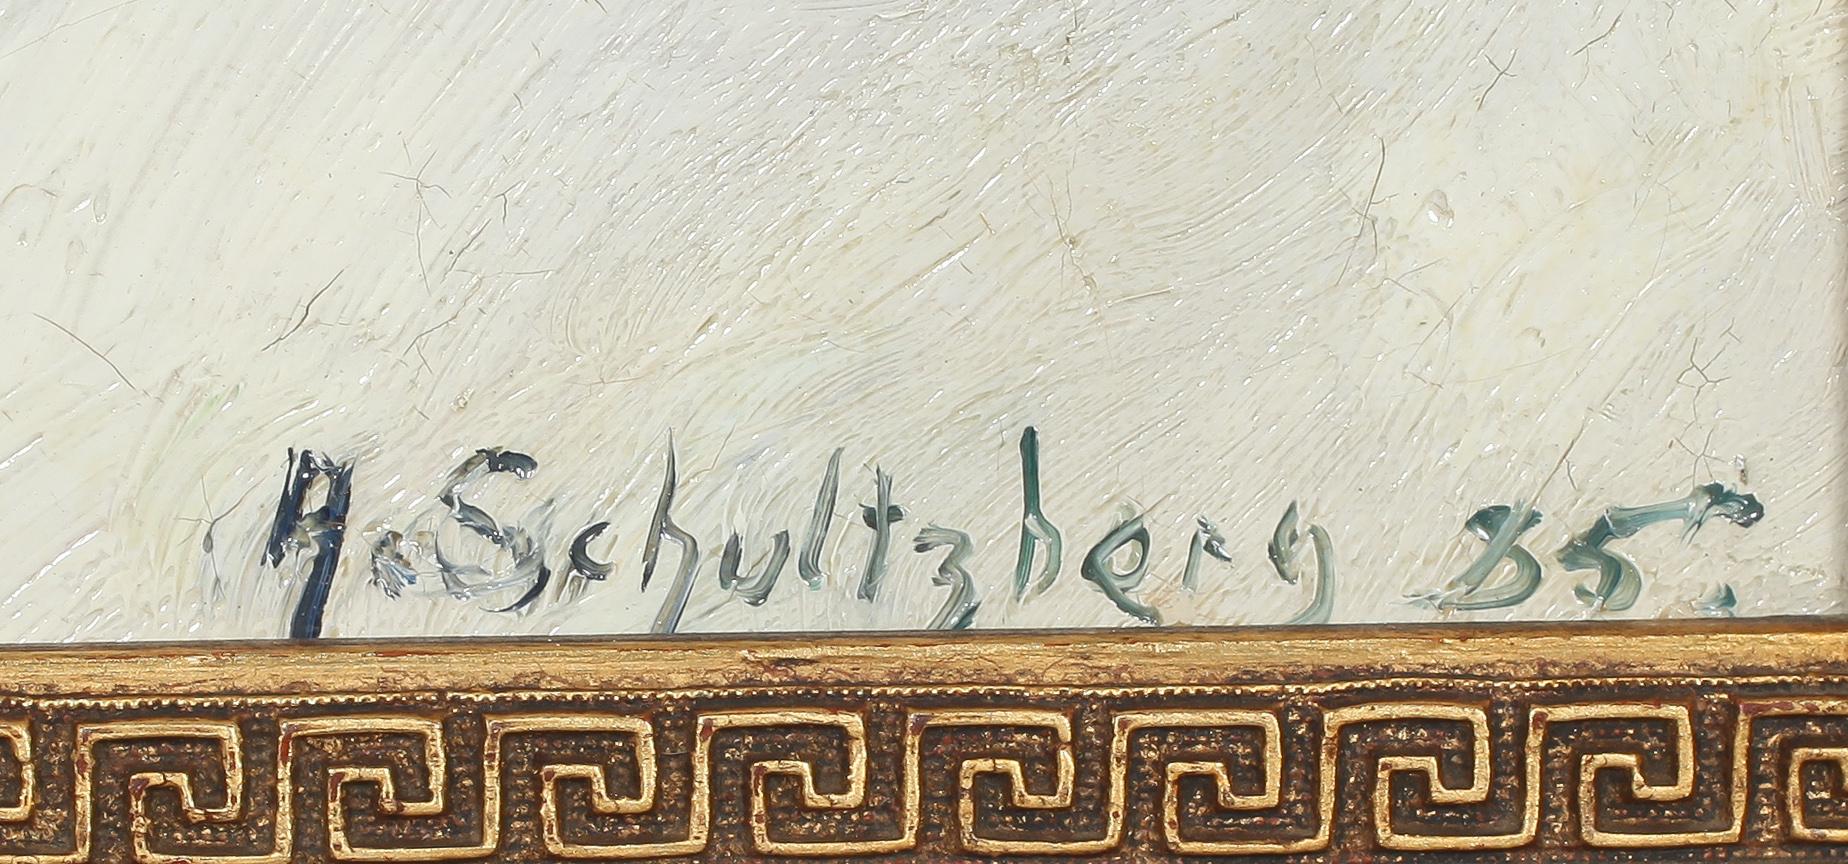 A. Schultzberg 35.